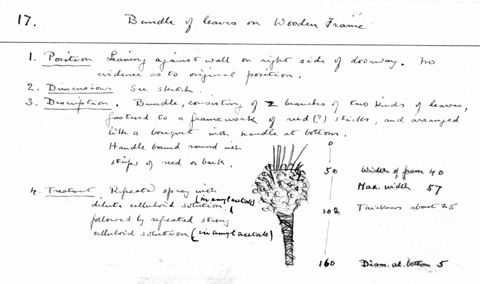 17. Bundle of leaves on Wooden Frame
1. Position Leaning against wall on right side of doorway. No
evidence as to original position.
2. Dimensions See sketch.
3. Description. Bundle, consisting of 2 branches of two kinds of leaves,
fastened to a framework of reed (?) sticks, and arranged
like a bouquet with handle at bottom.
Handle bound round with
strips of reed or bark.
0
50 Width of frame 40
Max. width 57
4. Treatment. Repeated spray with
dilute celluloid solution (in amyl acetate)
102 Thickness about 25
followed by repeated strong
celluloid solution (in amyl acetate)
160 Diam. at bottom 5